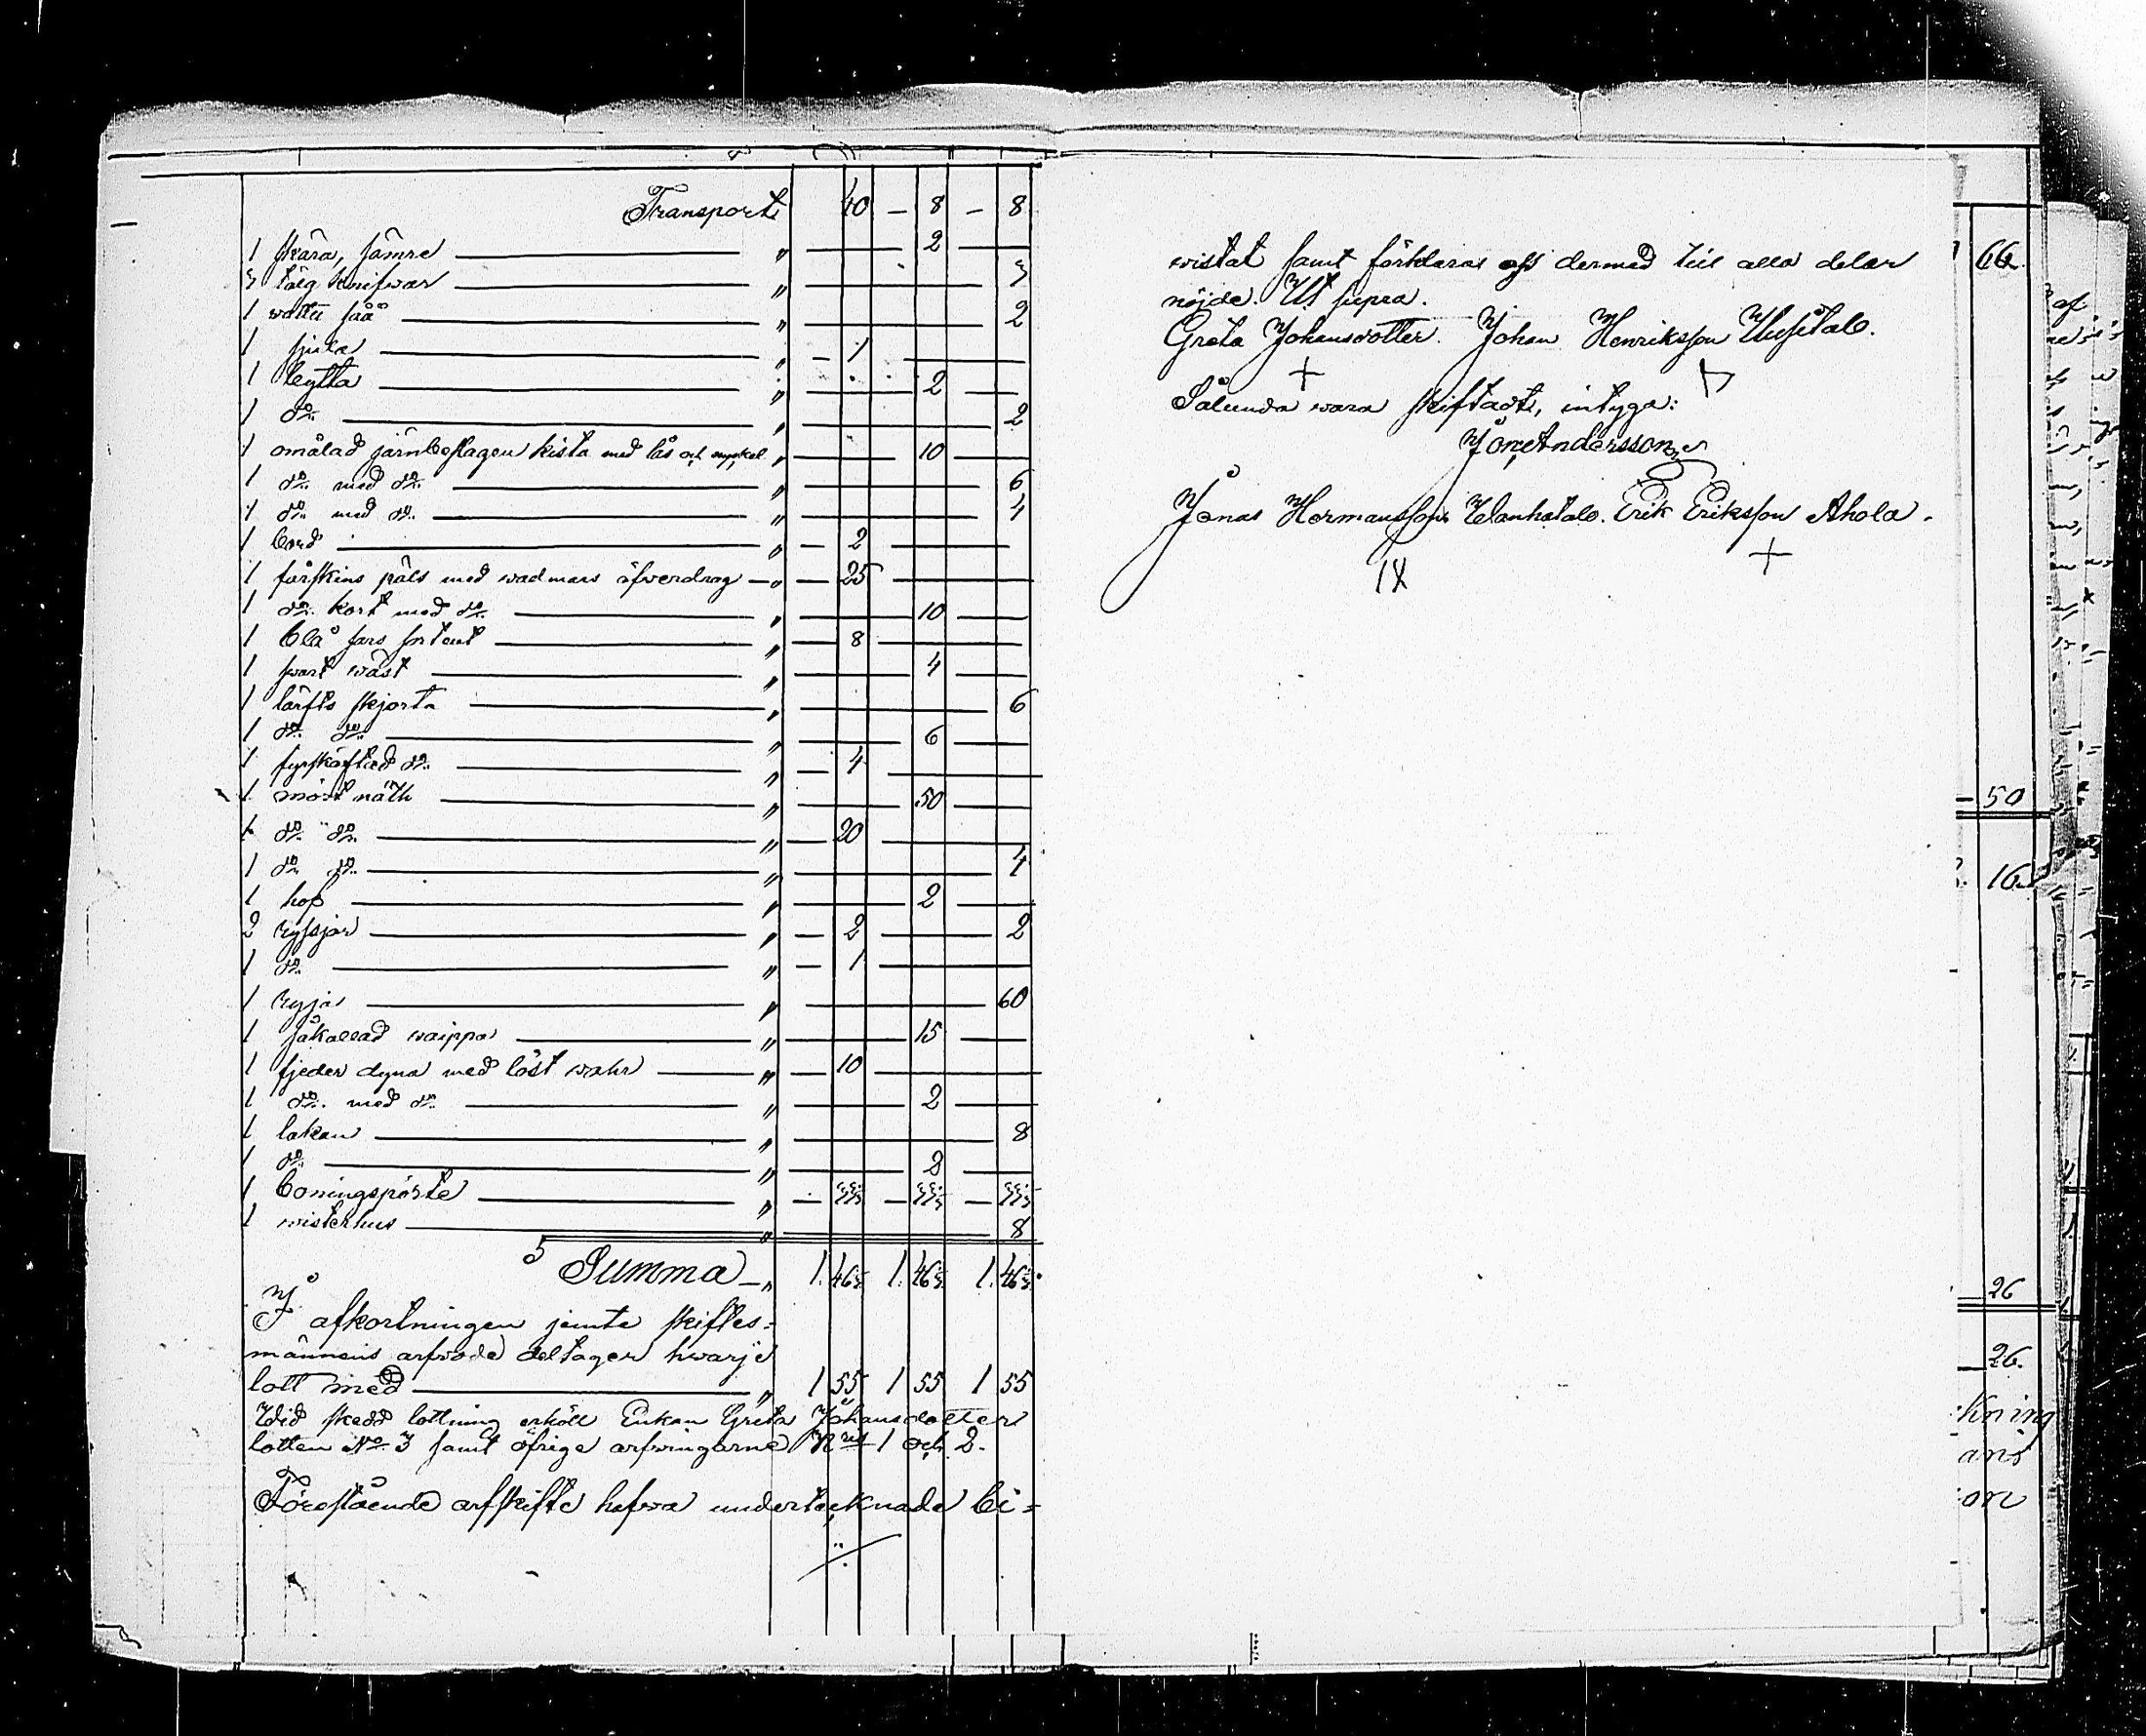 Transport " 40 — 8 — 8
1 skära, sämre " 2
3 tälg knifwar " 3
1 wattu så " 2
1 skjula " 1
1 bytta " 2
1 d:o " 2
1 omålad järnbeslagen kista med lås och nyckel " 10
1 d:o med d:o " 6
1 d:o med d:o " 4
1 bord " 2
1 fårskins päls med wadmars öfverdrag " 25
1 d:o kort med d:o " 10
1 blå sars sortout " 8
1 swart wäst " 4
1 lärfts skjorta " 6
1 d:o d:o " 6
1 fyrskäftad d:o " 4
1 mört nät " 50
1 d:o d:o " 20
1 d:o d:o " 4
1 hop " 2
2 ryssjor " 2 2
1 d:o " 1
1 ryja " 60
1 såkallad waippa " 15
1 fjeder dyna med löst wahr " 10
1 d:o med d:o " 2
1 lakan " 8
1 d:o " 2
1 boningspörte " 33⅓ 33⅓ 33⅓
1 wisterhus " 8
Summa " 1.46⅓ 1.46⅓ 1.46⅓
I afkortningen jemte skiftes=
männens arfvode deltager hwarje
lott med " 1 55 1 55 1 55
Wid skedd lottning erhöll Enkan Greta Johansdotter
lotten No 3 samt öfrige arfwingarne N:ris 1 och 2.
Förestående arfskifte hafva undertecknade bi=
./.
wistat samt förklaras oss dermed till alla delar
nöjde. Ut supra.
Greta Johansdotter. Johan Henriksson Uusitalo.
+
Sålunda wara skiftadt, intyga:
Jon Andersson
Jonas Hermansson Wanhatalo. Erik Eriksson Ahola.
+
66
50
16
26
26.
kning
ans
om